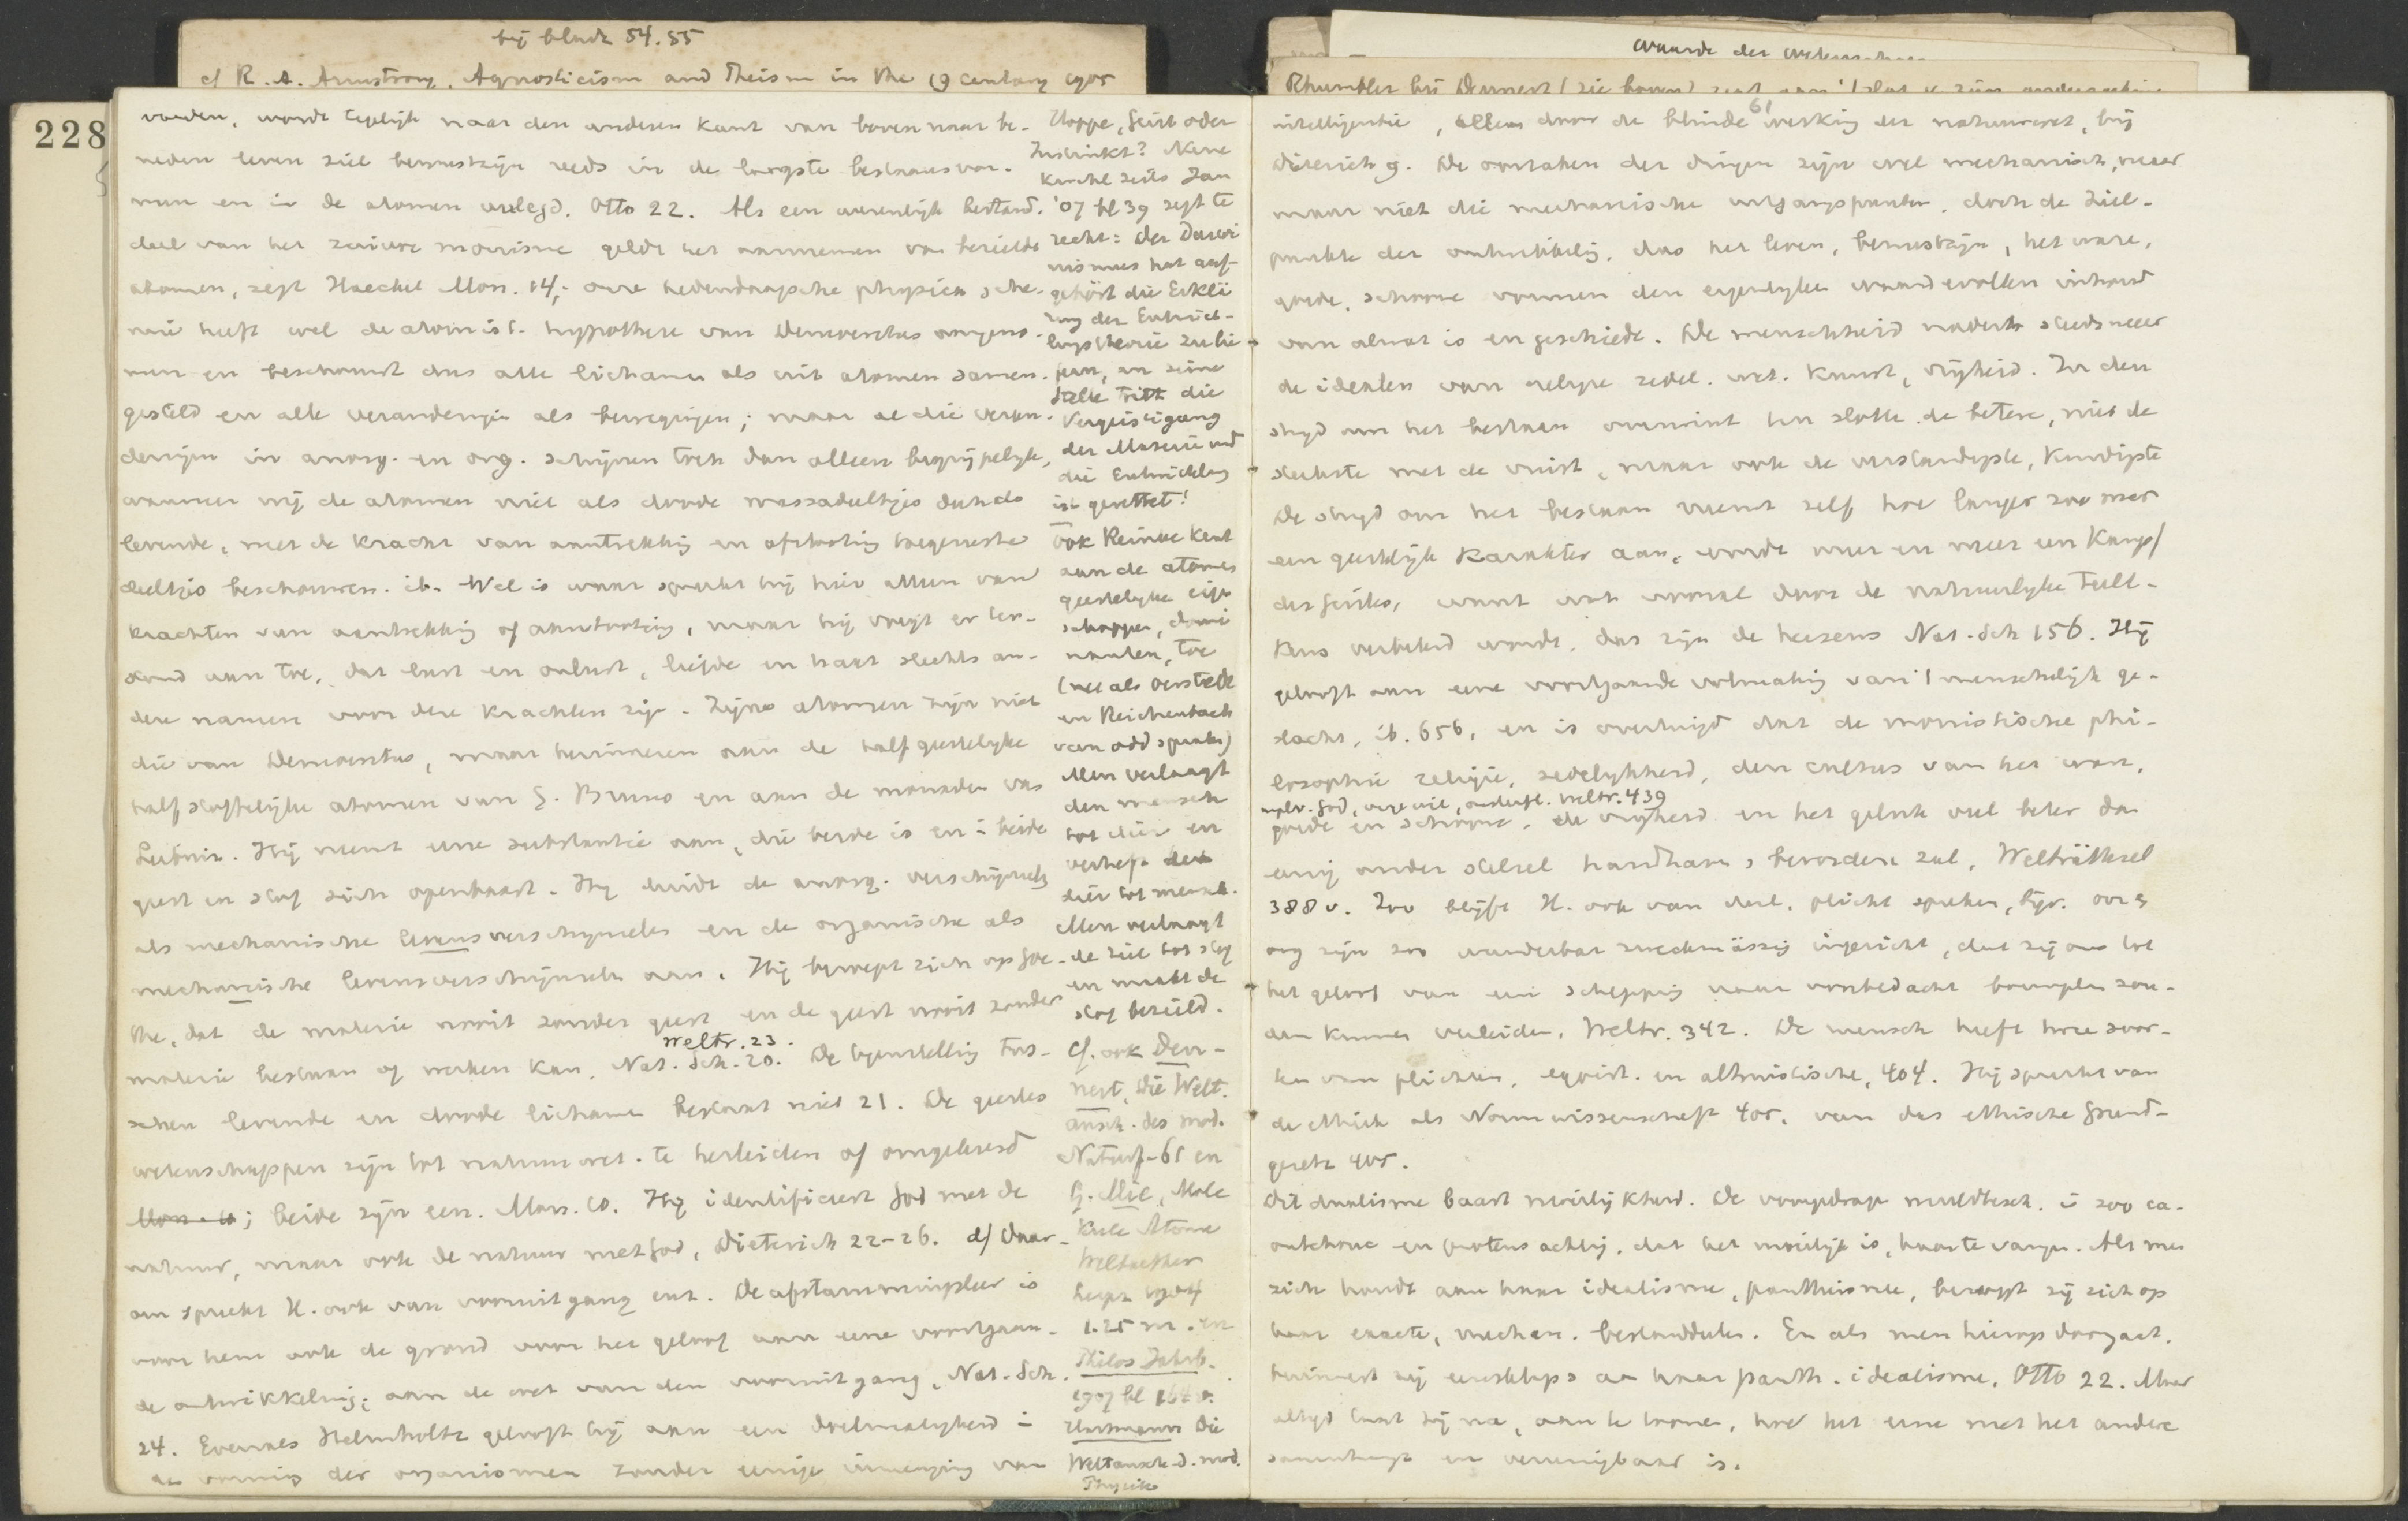 bij bladz 54.55
cf R. A. Armstrong, Agnosticism and Theism in the 19 century 1905
waarde der
Rhumbler bij Dennert (zie boven) zegt
228
61
worden, wordt tegelijk naar den anderen kant van boven naar be-
neden leven ziel bewustzijn reeds in de laagste bestaansvor-
men en in de atomen verlegd. Otto 22. Als een wezenlijk bestand-
deel van het zuivere monisme geldt het aannemen van bezielde
atomen, zegt Haeckel Mon. 14, onze hedendaagsche physica sche-
mie heeft wel de atomist. hypothese van Democritus aangeno-
men en beschouwt dus alle lichamen als uit atomen samen-
gesteld en alle veranderingen als bewegingen; maar al die veran-
deringen in anorg. en org. schijnen toch dan alleen begrijpelijk,
wanneer wij de atomen niet als doode massadeeltjes doch als
levende, met de kracht van aantrekking en afstooting toegeruste
deeltjes beschouwen. ib. Wel is waar spreekt hij hier alleen van
krachten van aantrekking of afstooting, maar hij voegt er ter-
stond aan toe, dat lust en onlust, liefde en haat slechts an-
dere namen voor deze krachten zijn. Zijne atomen zijn niet
die van Democritus, maar herinneren aan de half geestelijke
half stoffelijke atomen van G. Bruno en aan de monaden van
Leibniz. Hij neemt eene substantie aan, die beide is en in beide
geest en stof zich openbaart. Hij duidt de anorg. verschijnselen
als mechanische levensverschijnselen en de organische als
mechanische levensverschijnselen aan. Hij beroept zich op Goe-
the, dat de materie nooit zonder geest en de geest nooit zonder
Weltr. 23.
materie bestaan of werken kan, Nat. Sch. 20. De tegenstelling tus-
schen levende en doode lichamen bestaat niet 21. De geestes
wetenschappen zijn tot natuurwet. te herleiden of omgekeerd
Mon. 10; beide zijn een. Mon. 10. Hij identificeert God met de
natuur, maar ook de natuur met God, Dieterich 22-26. d) Daar-
om spreekt H. ook van vooruitgang enz. De afstammingsleer is
voor hem ook de grond voor het geloof aan eene voortgaan-
de ontwikkeling, aan de wet van den vooruitgang, Nat. Sch.
24. Evenals Helmholtz gelooft hij aan een doelmatigheid in
de vorming der organismen zonder eenige inmenging van
Hoppe, Geist oder
Instinkt? Neue
Kirchl Zeits Jan
'07 bl 39 zegt te
recht: Der Darwi
nismus hat auf-
gehört die Erklä
rung der Entwick-
lungstheorie zu lie
fern, an seine
Stelle tritt die
Vergeistigung
der Materie und
die Entwicklung
ist gerettet!
Ook Reinke kent
aan de atomen
geestelijke eigen
schappen, domi
nanten, toe
(net als Oerstedt
en Reichenbach
van odd spraken)
Men verlaagt
den mensch
tot dier en
verheft het
dier tot mensch.
Men verlaagt
de ziel tot stof
en maakt de
stof bezield.
cf. ook Den-
nert, Die Welt.
ansch. des mod.
Naturf. 61 en
G. Mie, Mole
küle Atome
Weltaether
Leipz 1904
1.25 M. en
Philos Jahrb.
1907 bl 164 v.
Hartmann Die
Weltansch. d. mod.
Physik
intelligentie, alleen door de blinde werking der natuurwet, bij
Dieterich 9. De oorzaken der dingen zijn wel mechanisch, maar
maar niet die mechanische uitgangspunten, doch de ziel-
punten der ontwikkeling, dus het leven, bewustzijn, het ware,
goede, schoone vormen den eigenlijken waardevollen inhoud
van al wat is en geschiedt. De menschheid nadert steeds meer
de idealen van religie zedel. wet. kunst, vrijheid. In den
strijd om het bestaan overwint ten slotte de betere, niet de
sterkste met de vuist, maar ook de verstandigste, kundigste
De strijd om het bestaan neemt zelf hoe langer zoo meer
een geestelijk karakter aan, wordt meer en meer een Kampf
des Geistes, want wat vooral door de natuurlijke teelt-
keus verbeterd wordt, dat zijn de hersens Nat. Sch 156. Hij
gelooft aan eene voortgaande volmaking van 't menschelijk ge-
slacht, ib. 656, en is overtuigd dat de monistische phi-
losophie religie, zedelijkheid, den cultus van het ware,
goede en schoone, de vrijheid en het geluk veel beter dan
eenig ander stelsel handhaven & bevorderen zal, Welträthsel
388 v. Zoo blijft H. ook van doel, plicht spreken, bijv. onze
org zijn zoo wunderbar zweckmässig ingericht, dat zij ons tot
het geloof van een schepping naar voorbedacht bouwplan zou-
den kunnen verleiden, Weltr. 342. De mensch heeft twee soor-
ten van plichten, egoist. en altruistische, 404. Hij spreekt van
de ethiek als Normwissenschaft 405, van das ethische Grund-
gesetz 405.
Dit dualisme baart moeilijkheid. De
proteus achtig, dat het moeilijk is, haar te vangen. Als men
zich houdt aan haar idealisme, pantheisme, beroept zij zich op
haar exacte, mechan. bestanddeelen. En als men hierop doorgaat,
herinnert zij eensklaps aan haar panth. idealisme, Otto 22. Maar
altijd laat zij na, aan te toonen, hoe het eene met het andere
samenhangt en vereenigbaar is.